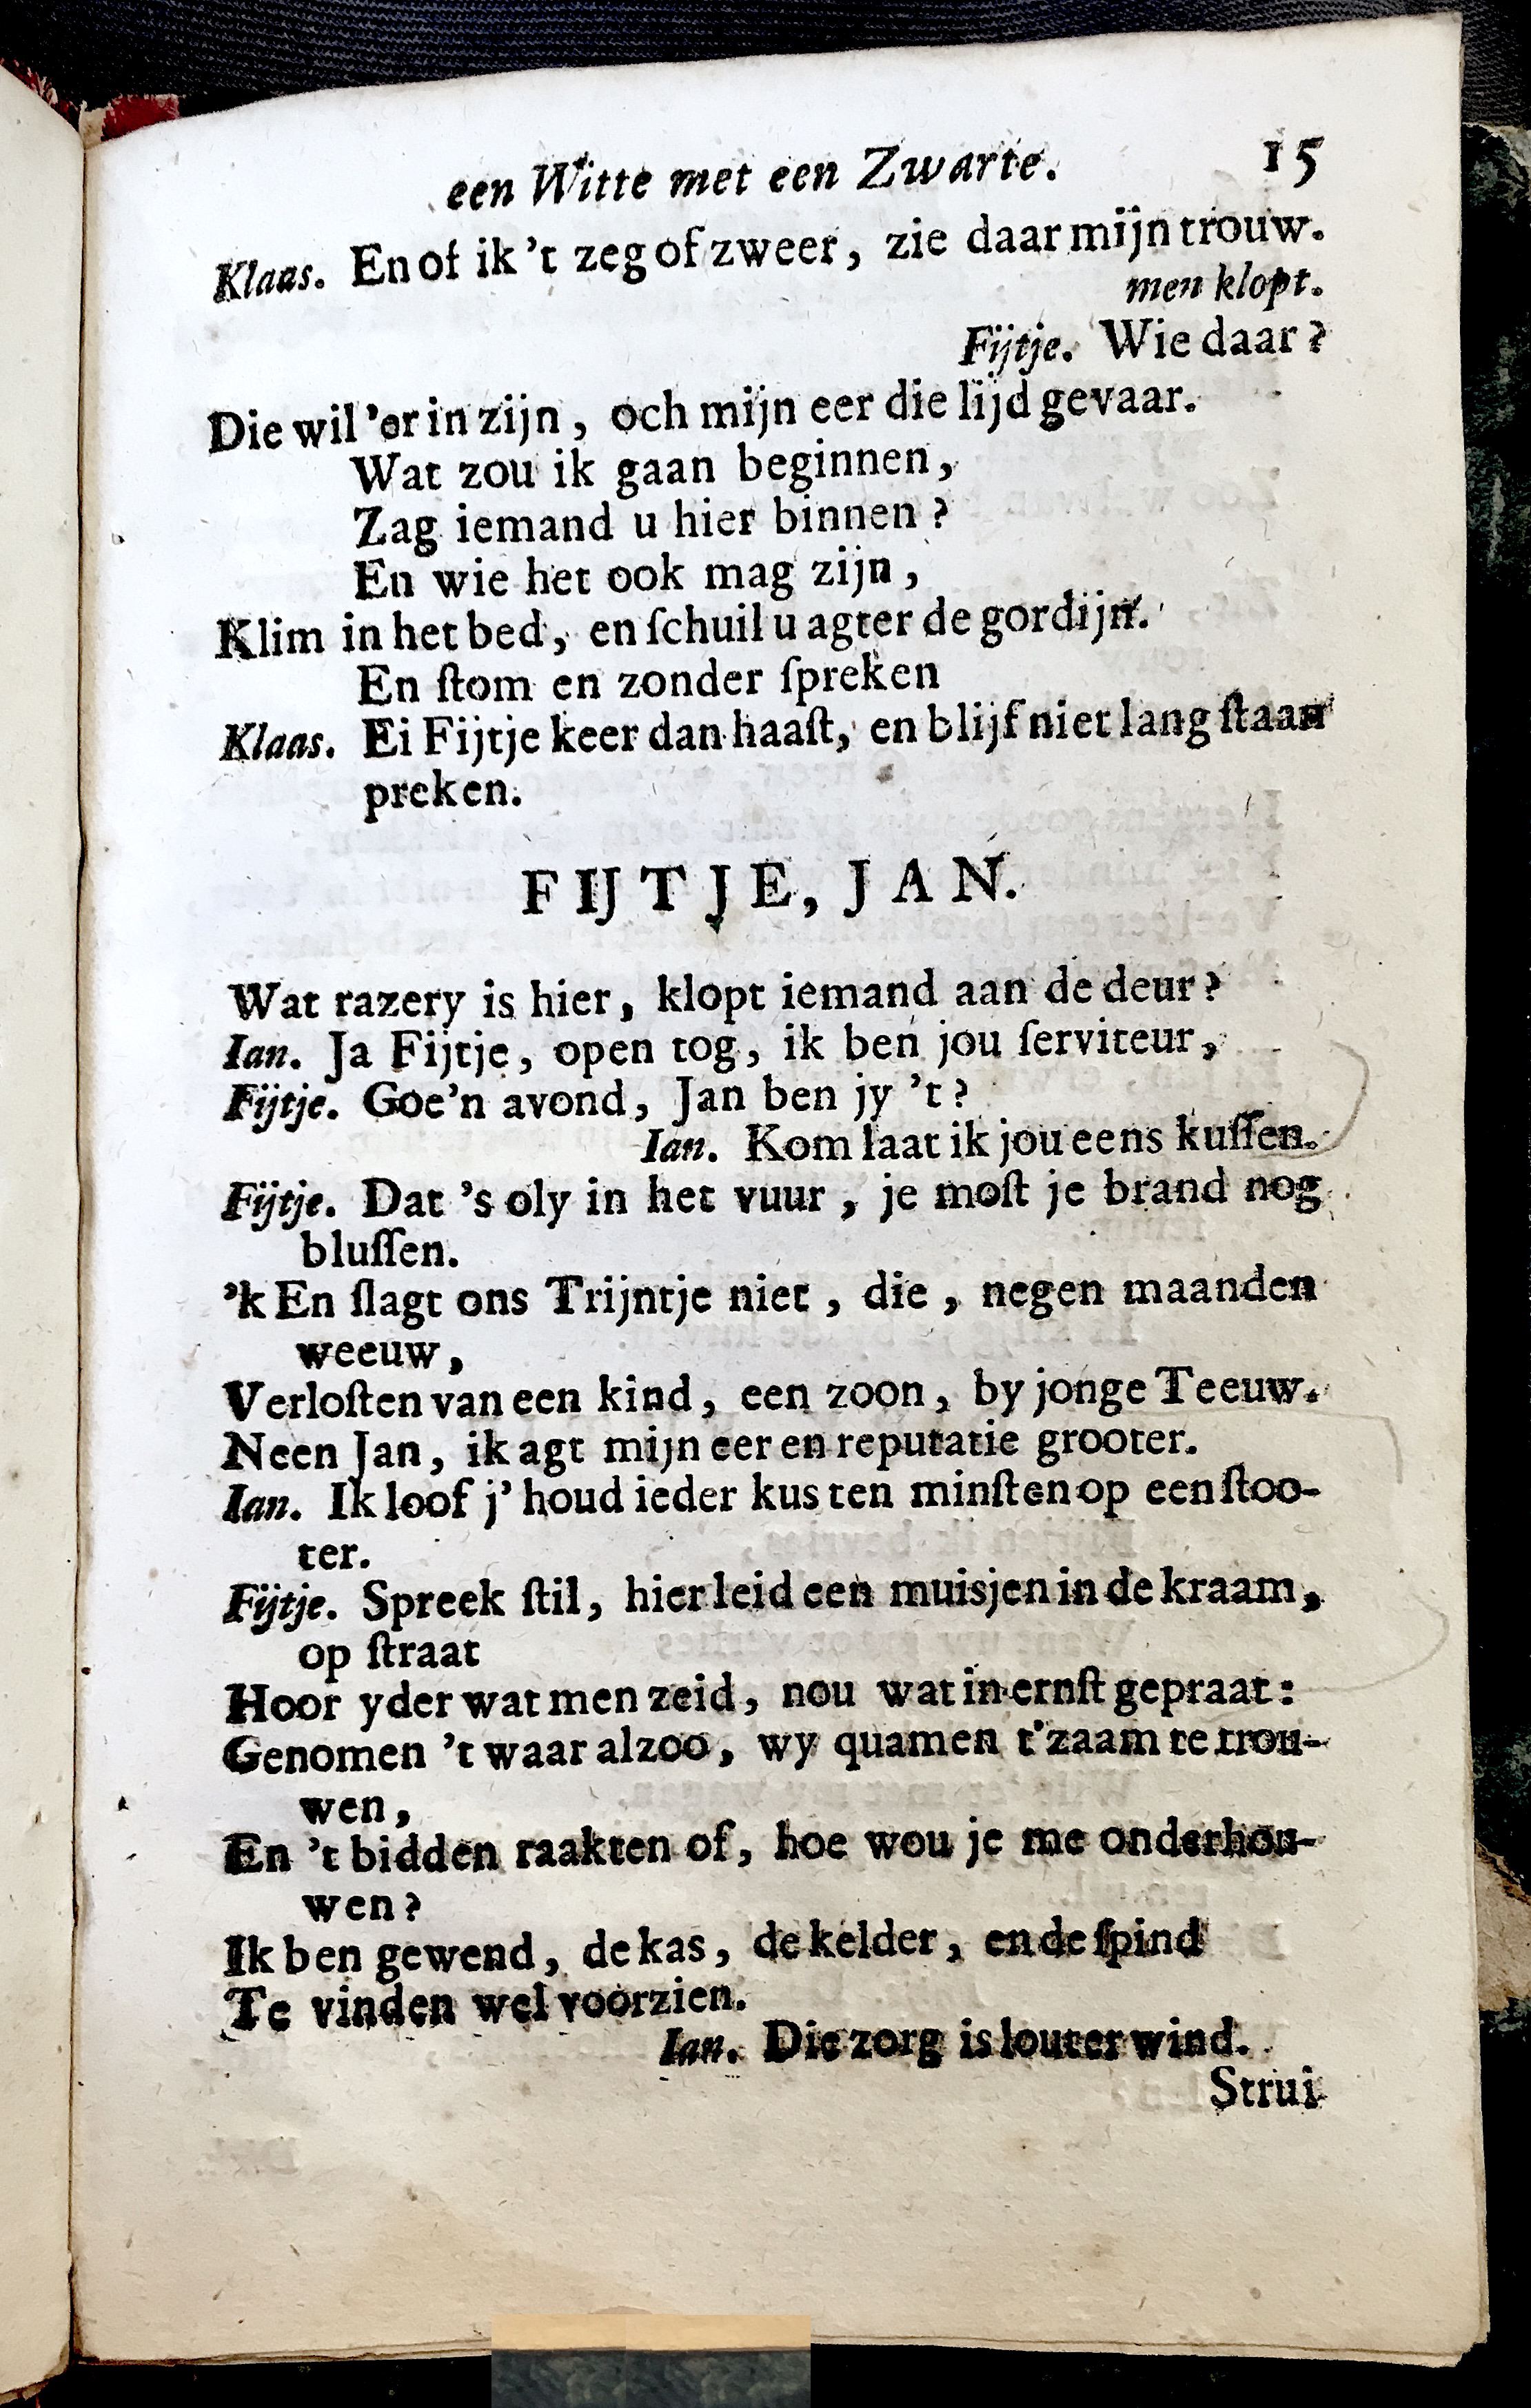 een Witte met een Zwarte. 15
Klaas. En of ik 't zeg of zweer, zie daar mijn trouw.
men klopt.
Fijtje. Wie daar?
Die wil 'er in zijn, och mijn eer die lijd gevaar.
Wat zou ik gaan beginnen,
Zag iemand u hier binnen?
En wie het ook mag zijn,
Klim in het bed, en ſchuil u agter de gordijn.
En ſtom en zonder ſpreken
Klaas. Ei Fijtje keer dan haaſt, en blijf niet lang ſtaan
preken.
FIJTJE, JAN.
Wat razery is hier, klopt iemand aan de deur?
Ian. Ja Fijtje, open tog, ik ben jou ſerviteur,
Fijtje. Goe'n avond, Jan ben jy 't?
Ian. Kom laat ik jou eens kuſſen.
Fijtje. Dat 's oly in het vuur, je moſt je brand nog
bluſſen.
'k En ſlagt ons Trijntje niet, die, negen maanden
weeuw,
Verloſten van een kind, een zoon, by jonge Teeuw.
Neen Jan, ik agt mijn eer en reputatie grooter.
Ian. Ik loof j' houd ieder kus ten minſten op een ſtoo-
ter.
Fijtje. Spreek ſtil, hier leid een muisjen in de kraam,
op ſtraat
Hoor yder wat men zeid, nou wat in ernſt gepraat:
Genomen 't waar alzoo, wy quamen t'zaam te trou-
wen,
En 't bidden raakten of, hoe wou je me onderhou-
wen?
Ik ben gewend, de kas, de kelder, en de ſpind
Te vinden wel voorzien.
Ian. Die zorg is louter wind.
Strui-